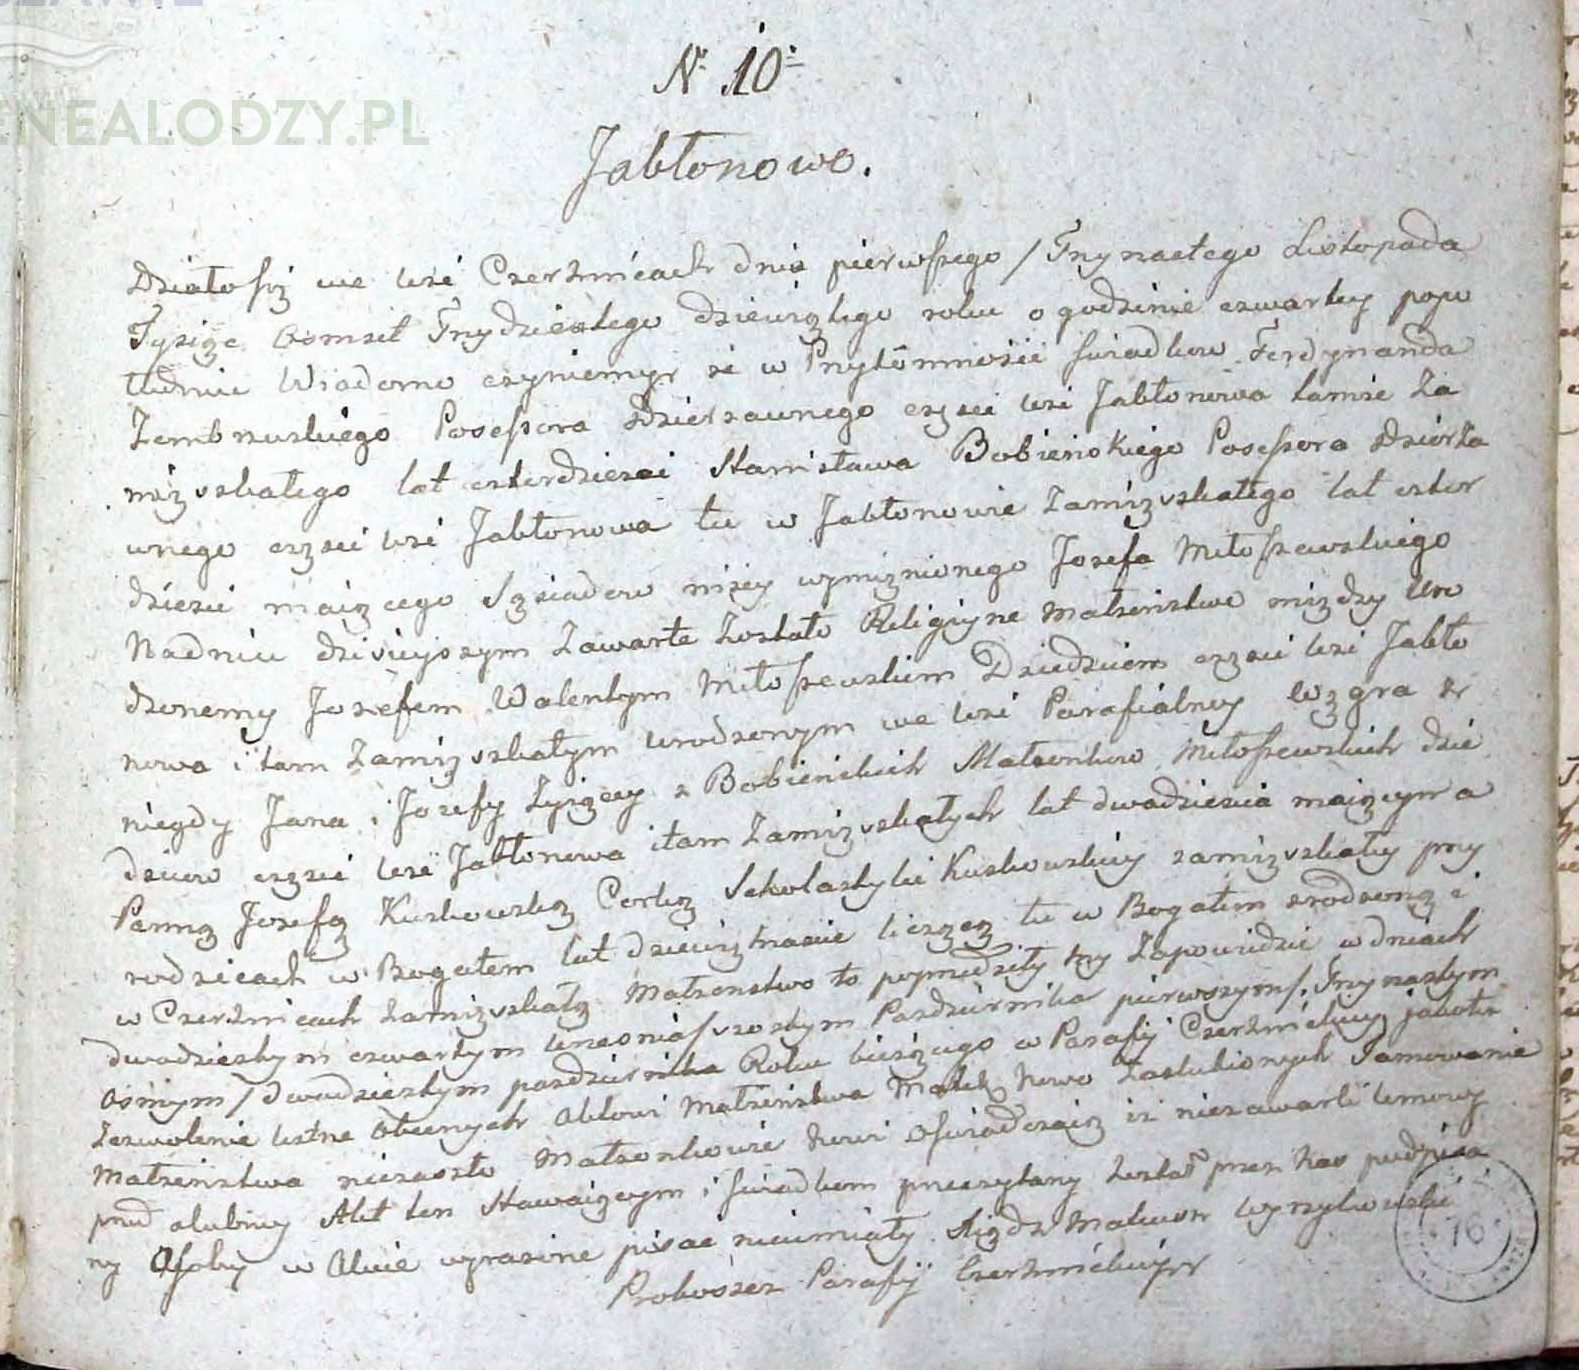 ENEALODZY.PL
N. 10:
Jabłonowo.
Działo się we wsi Czerżnicach dnia pierwszego / Trzynastego Listopada
Tysiąc Osmset Trzydziestego dziewiątego roku o godzinie czwartey popo
łudniu Wiadomo czyniemy, że w Przytomności świadkow Ferdynanda
Zembrzuskiego Posessora dzierzawnego części wsi Jabłonowa tamże za
mięszkałego lat czterdzieści Stanisława Bobieńskiego Posessora dzierża
wnego części wsi Jabłonowa tu w Jabłonowie zamięszkałego lat czter
dzieści maiącego Sąsiadow niżey wymięnionego Jozefa Miłoszewskiego
Nadniu dzisieyszym Zawarte Zostało Religiyne Małżeństwo między Uro
dzonemy Jozefem Walentym Miłoszewskiem Dziedzicem części wsi Jabło
nowa i tam Zamięszkałym urodzonym we wsi Parafialney Węgra z
niegdy Jana i Jozefy Żyiący z Bobieńskich Małżonkow Miłoszewskich dzie
dzicow części wsi Jabłonowa i tam Zamięszkałych lat dwadzieścia maiącym a
Panną Jozefą Kuskowską Corką Sekolastyki Kuskowskiey zamięszkałey przy
rodzicach w Bogatem lat dziewiętnaście liczącą tu w Bogatem zrodzoną i
w Czerżnicach zamięszkałą Małżenstwo to poprzedziły trzy Zapowiedzie w dniach
dwudziestym czwartym września / szostym Pazdziernika pierwszym /. Trzynastym
osmym / Dwudziestym pazdziernika Roku bieżącego w Parafij Czerżnickiey jakoteż
Zezwolenie ustne obecnych Aktowi Małżeństwa Matek Nowo Zaslubionych Tamowanie
Małżeństwa niezaszło Małżonkowie Nowi Oświadczaią iż niezawarli umowy
przed slubney Akt ten Stawaiącym i świadkom przeczytany Został przez Nas podpisa
ny Osoby w Akcie wyrażone pisac nieumiały. Xiądz Wyrzykowski
Proboszcz Parafij Czerżnickiey
16